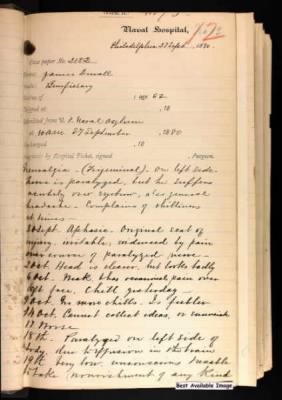 Naval Hospital,
Philadelphia 27 Sept, 1880.
Case paper No. 2182
James Small
Beneficiary
age 62
, 18
Admitted from U. S. Naval Asylum
27 September, 1880
, 18
by Hospital Ticket, signed , Surgeon.
Neuralgia - (Trigeminal) - On left side.
is paralyzed, but he suffers
mentally over eyebrow, also general
headache - Complains of chilliness
at times -
30 Sept. Aphasia. Original seat of
injury, irritable, endorsed by pain
over course of paralyzed nerve -
2 Oct. Head is clearer, but looks badly
6 Oct. Weak, & has occasional pain over
left face. Chill yesterday -
9 Oct. No more chills. Is feebler
14 Oct. Cannot collect ideas, or
17 Worse
18th. Paralyzed on left side of
body, due to effusion in the brain
19th. Very low, unconscious, unable
to take nourishment of any kind
Best Available Image